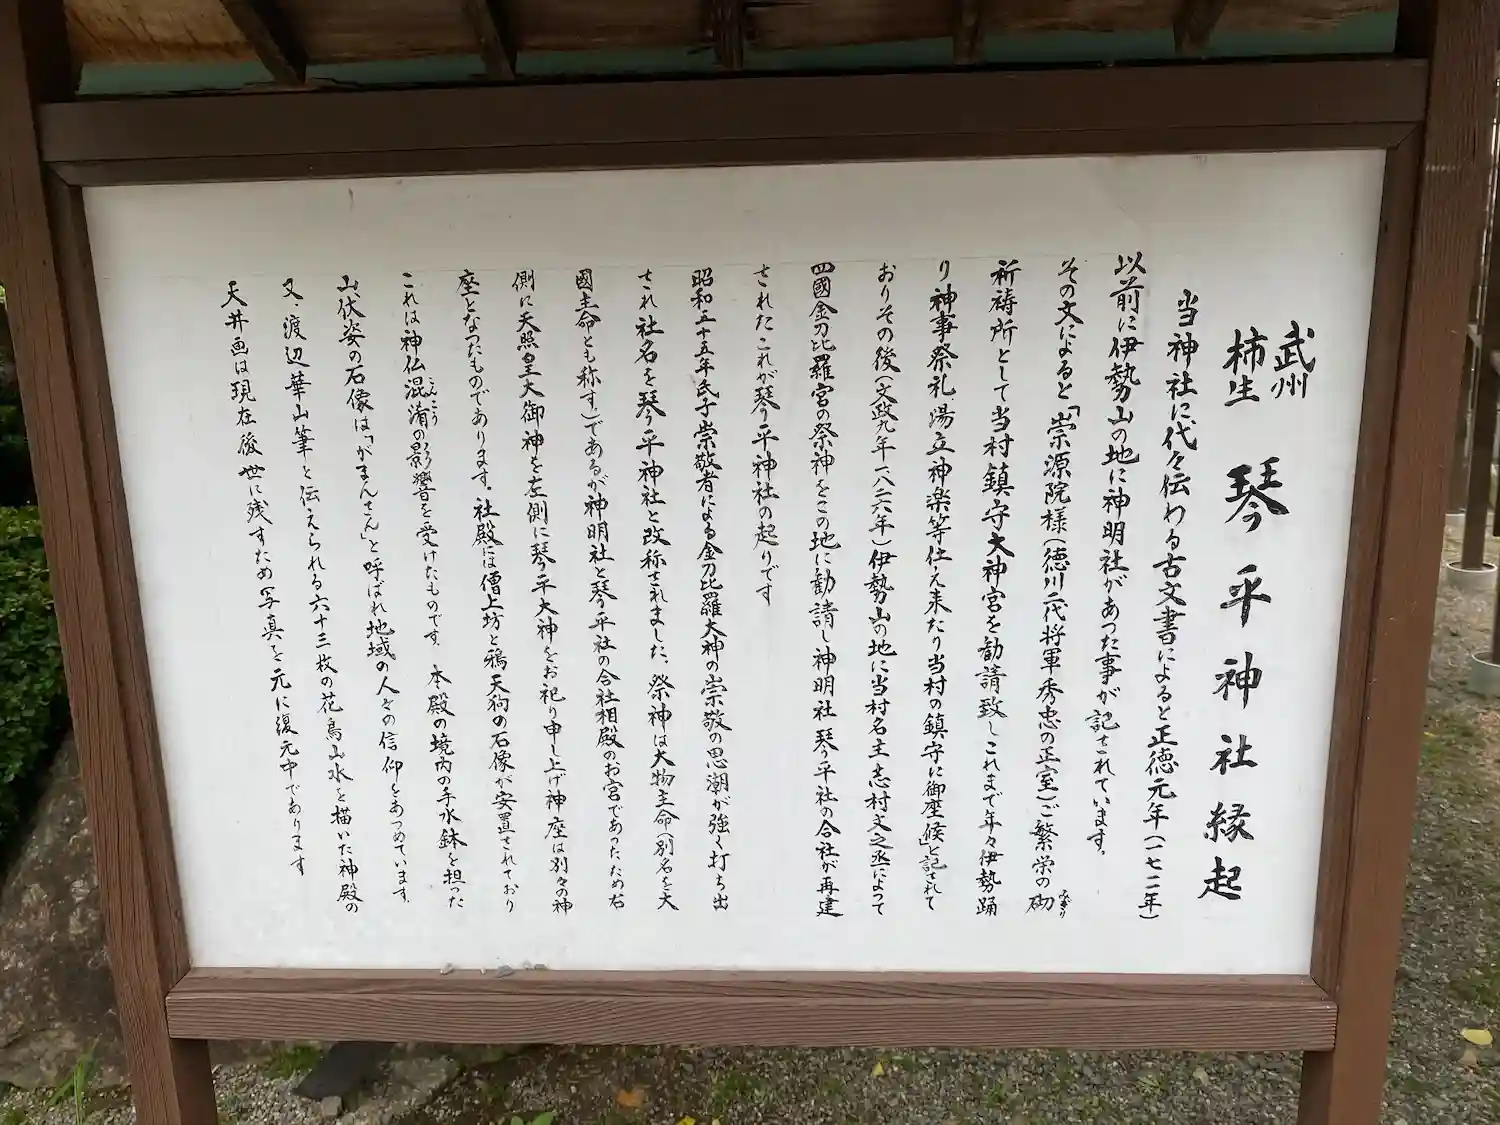 武州
柿生 琴平神社縁起
当神社に代々伝わる古文書によると正徳元年(一七一一年)
以前に伊勢山の地に神明社があった事が記されています。
その文によると「崇源院様(徳川二代将軍秀忠の正室)ご繁栄の砌みぎり
祈祷所として当村鎮守大神宮を勧請致しこれまで年々伊勢踊
り神事祭礼湯立神楽等仕え来たり当村の鎮守に御座候」と記されて
おりその後(文政九年一八二六年)伊勢山の地に当村名主志村文之丞によって
四國金刀比羅宮の祭神をこの地に勧請し神明社琴平社の合社が再建
されたこれが琴平神社の起りです
昭和五十五年氏子崇敬者による金刀比羅大神の崇敬の思潮が強く打ち出
され社名を琴平神社と改称されました、祭神は大物主命(別名を大
國主命とも称す)であるが神明社と琴平社の合社相殿のお宮であったため右
側に天照皇大御神を左側に琴平大神をお祀り申し上げ神座は別々の神
座となったものであります。社殿には僧上坊と鴉天狗の石像が安置されており
これは神仏混淆こんこうの影響を受けたものです。本殿の境内の手水鉢を担った
山伏姿の石像は「がまんさん」と呼ばれ地域の人々の信仰をあつめています。
又、渡辺華山筆と伝えられる六十三枚の花鳥山水を描いた神殿の
天井画は現在後世に残すため写真を元に復元中であります